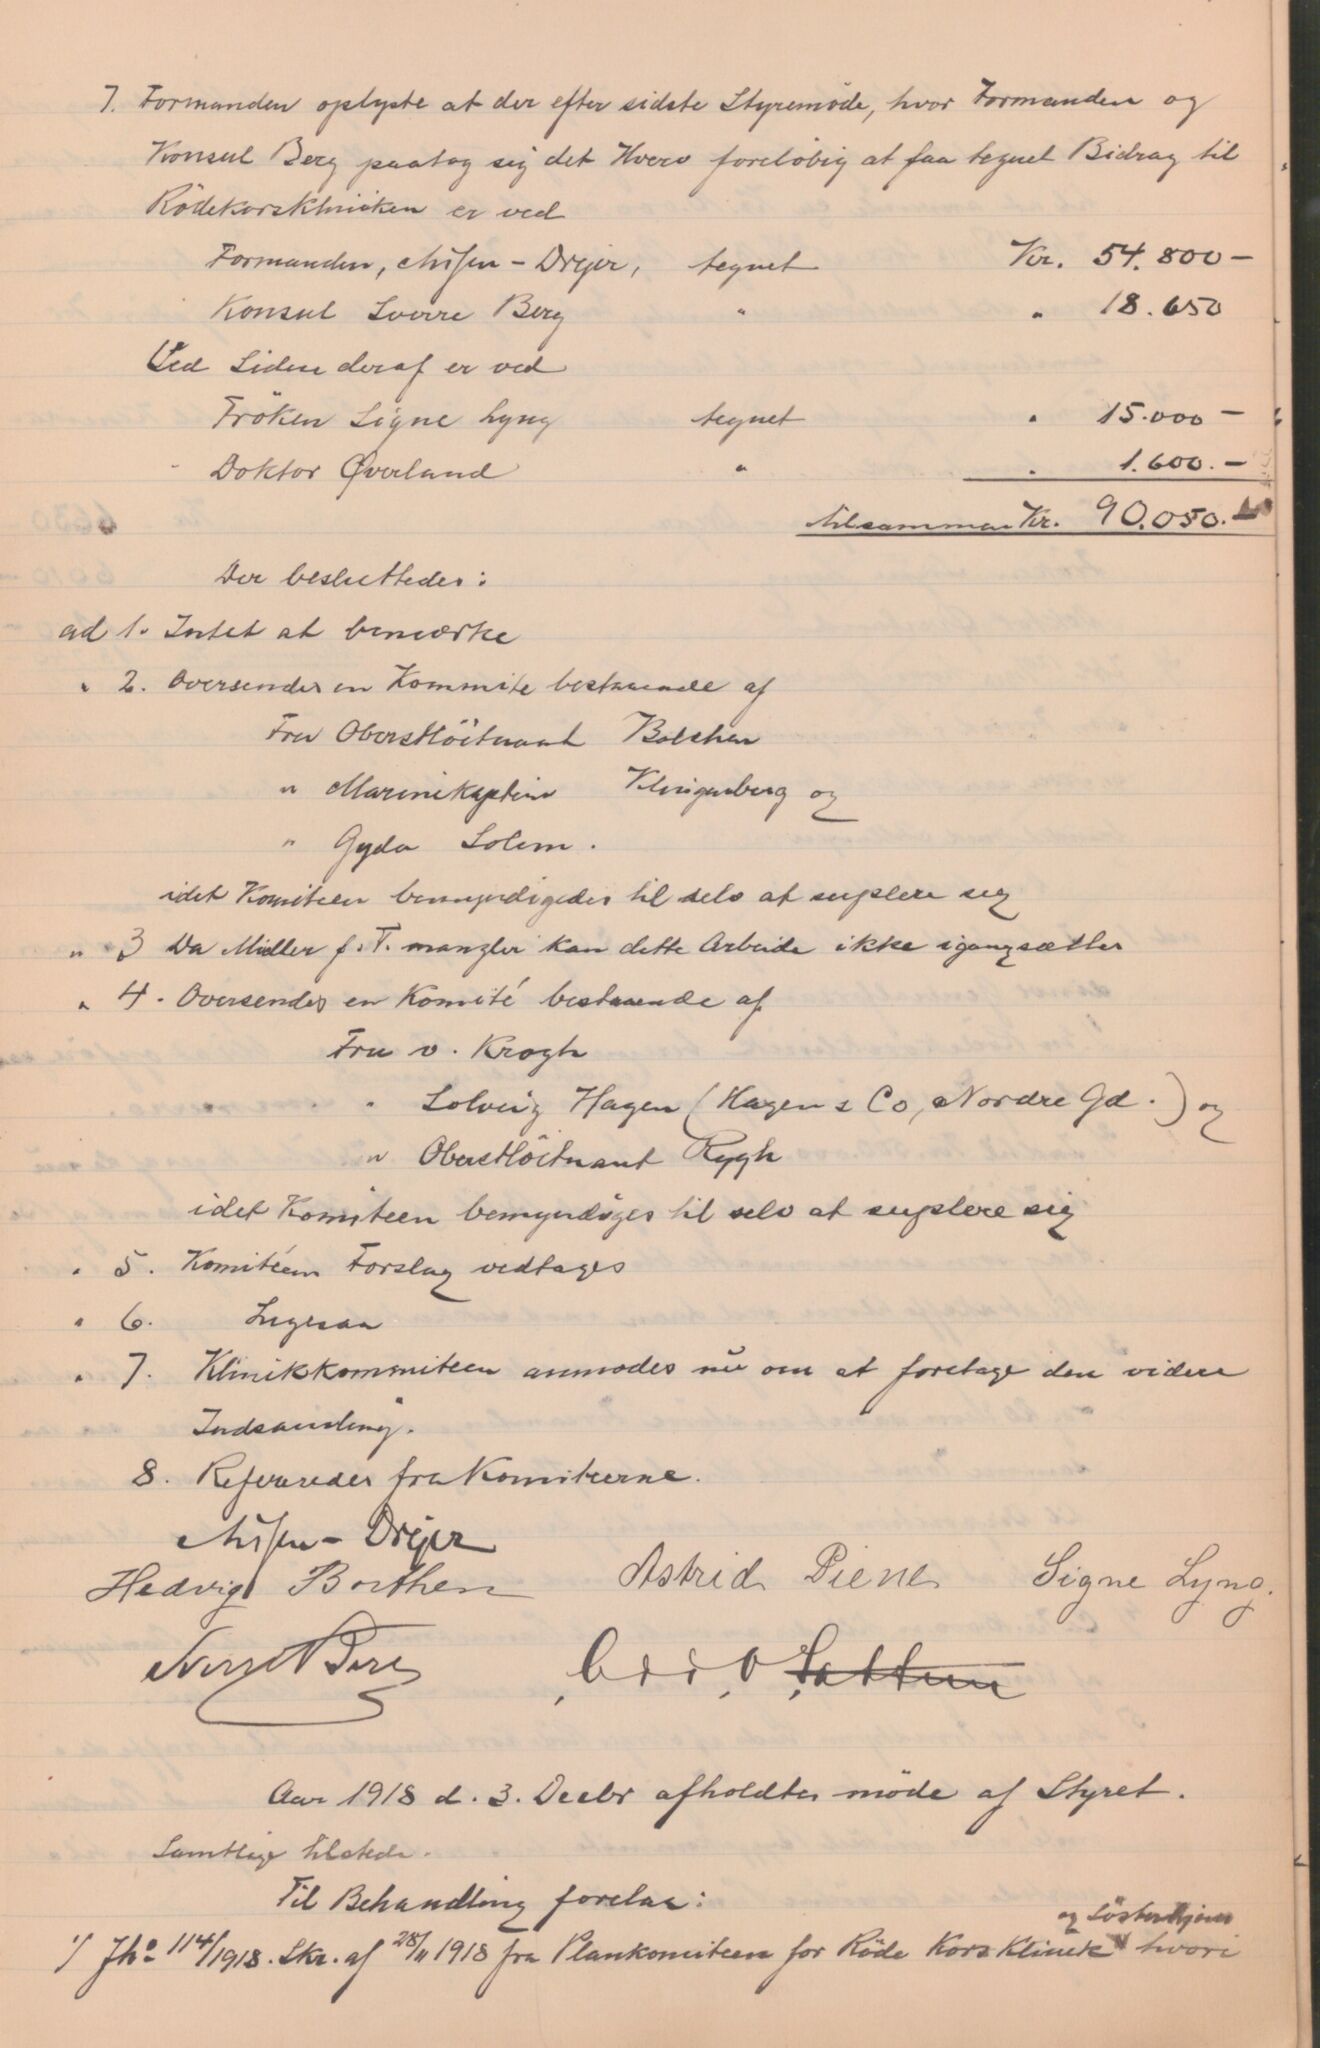 7. Formanden oplyste at der efter sidste Styremöde, hvor Formanden og
Konsul Berg paatog sig det Hverv foreløbig at faa tegnet Bidrag til
Rödekorskliniken er ved
Formanden, Nissen-Drejer, tegnet Kr. 54.800 —
Konsul Sverre Berg " " 18.650
Ved Siden deraf er ved
Fröken Signe Lyng tegnet " 15.000 —
Doktor Øverland " " 1.600. —
tilsammen Kr. 90.050. —
Der besluttedes:
ad 1. Intet at bemærke
" 2. Oversendes en Kommite bestaaende af
Fru Oberstlöitnant Bolsten
" Marinekaptein Klingenberg og
" Gyda Solem.
idet Komiteen bemyndigedes til selv at suplere sig
" 3 Da Midler f. T. mangler kan dette Arbeide ikke igangsættes
" 4. Oversendes en Komité bestaaende af
Fru v. Krogh
" Solveig Hagen (Hagen & Co, Nordre Gd.) og
" Oberstlöitnant Rygh
idet Komiteen bemyndiges til selv at suplere sig
" 5. Komitéens Forslag vedtages
" 6. Ligesaa
" 7. Klinikkommiteen anmodes nu om at foretage den videre
Indsamling.
8. Refereredes fra Komiteerne.
Nissen-Drejer
Hedvig Borthen Astrid Piene Signe Lyng.
Sverre Berg
Aar 1918 d. 3. Decbr afholdtes möde af Styret.
Samtlige tilstede.
Til Behandling forelaa:
og Søsterhjem
1/ Jno 114/1918. Skr. af 28/11 1918 fra Plankomiteen for Röde Kors Klinik hvori